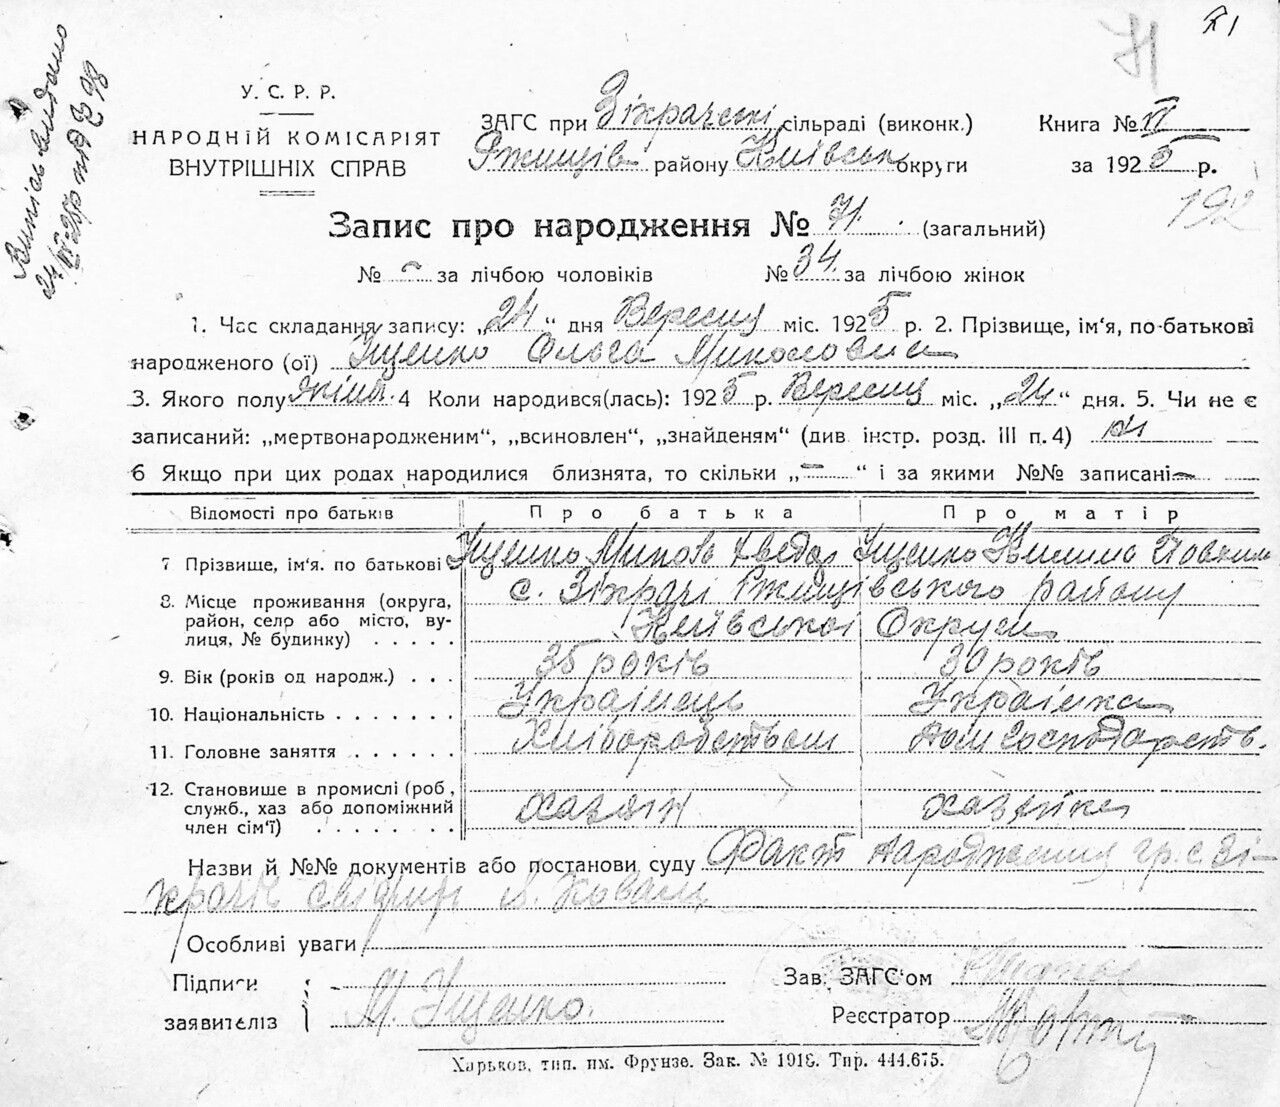 71
Випись видано
У. С. Р. Р.
НАРОДНІЙ КОМІСАРІЯТ
ВНУТРІШНІХ СПРАВ
ЗАГС при Зікрачскі сільраді (виконк.)
Ржищів району Київськ округи
Книга № VI
за 1925 р.
192
Запис про народження № 71 (загальний)
№ – за лічбою чоловіків № 34 за лічбою жінок
1. Час складання запису: „24“ дня Вересня міс. 1925 р. 2. Прізвище, ім'я, по-батькові
народженого (ої) Іщенко Ольга Миколовна
3. Якого полу жіно. 4 Коли народився(лась): 1925 р. Вересня міс. „24“ дня. 5. Чи не є
записаний: „мертвонародженим“, „всиновлен“, „знайденям“ (див. інстр. розд. III п. 4) ні
6 Якщо при цих родах народилися близнята, то скільки „–“ і за якими №№ записані –
Відомості про батьків Про батька Про матір
7 Прізвище, ім'я. по батькові Іщенко Микола Іщенко Килина
8. Місце проживання (округа, с. Зікрачі Ржищівського району
район, село або місто, ву-
лиця, № будинку) . . . . . Київської Округи
9. Вік (років од народж.) . . . 35 років 30 років
10. Національність . . . . . . . Українець Українка
11. Головне заняття . . . . . . Хліборобством Дом Господарств.
12. Становище в промислі (роб,
служб., хаз або допоміжний хазяїн хазяйка
член сім'ї) . . . . . . . .
Назви й №№ документів або постанови суду Факт народження гр. с. Зі-
крачів свідчит Коваль
Особливі уваги
Підписи
заявителів М. Іщенко.
Зав. ЗАГС'ом
Реєстратор
Харьков, тип. им. Фрунзе. Зак. № 1918. Тир. 444.675.